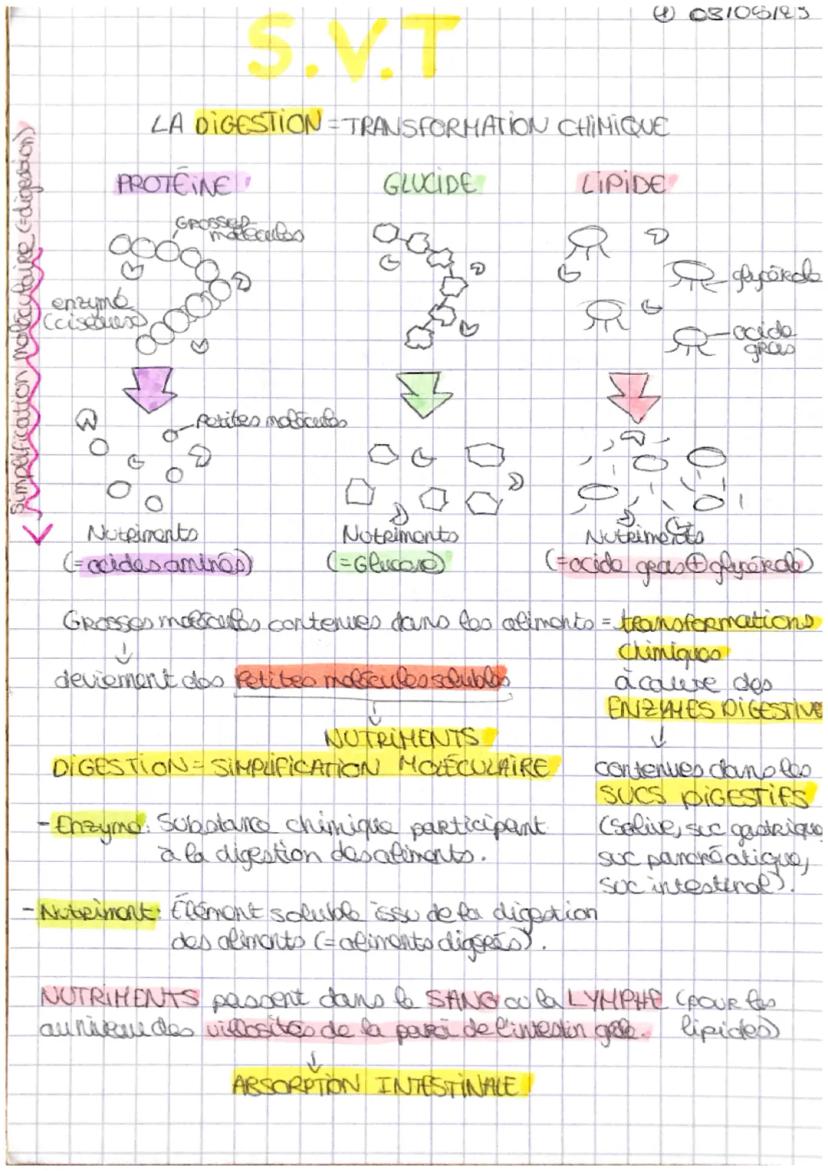 ① 03/06/23
S.V.T
LA DIGESTION = TRANSFORMATION CHIMIQUE
simplification moléculaire (=digestion)
PROTÉINE
GLUCIDE
LIPIDE
GROSSES molécules
enzyme (ciseaux)
glycérole
acide gras
Petites molécules
Nutriments
(=acides aminés)
Nutriments
(=Glucose)
Nutriments
(=acide gras + glycérole)
GROSSES molécules contenues dans les aliments = transformations
chimiques
à cause des
ENZYMES DIGESTIVE
contenues dans les
SUCS DIGESTIFS
(Salive, suc gastrique
suc pancréatique,
suc intestinal).
deviennent des Petites molécules solubles
NUTRIMENTS
DIGESTION = SIMPLIFICATION MOLÉCULAIRE
- Enzyme: Substance chimique participant
à la digestion des aliments.
- Nutriment: Élément soluble issu de la digestion
des aliments (= aliments digérés).
NUTRIMENTS passent dans le SANG ou la LYMPHE (pour les
lipides)
au niveau des villosités de la paroi de l'intestin grêle.
ABSORPTION INTESTINALE